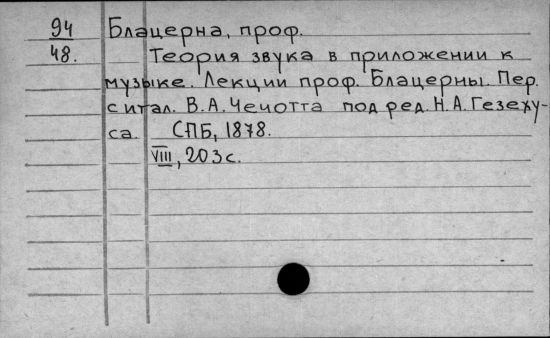 94 Блацерна, проф.
48. Теория звука в приложении к
музыке. Лекции проф. Блацерны. Пер.
с итал. В.А. Чечотта под ред. Н.А. Гезеху-
са. СПБ, 1878.
VIII, 203 с.